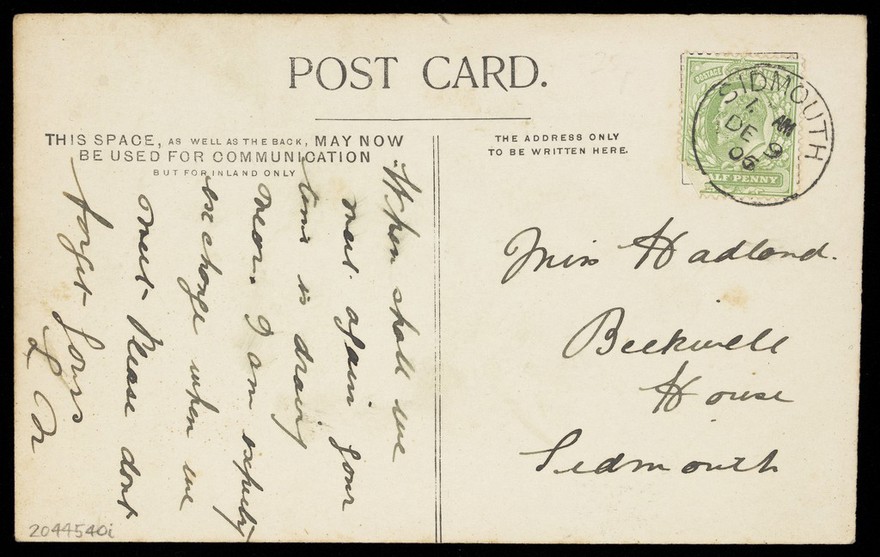 POST CARD.
THIS SPACE, AS WELL AS THE BACK, MAY NOW
BE USED FOR COMMUNICATION
BUT FOR INLAND ONLY
THE ADDRESS ONLY
TO BE WRITTEN HERE.
POSTAGE
HALF PENNY
SIDMOUTH
AM
DE 9
06
Miss Hadland.
Beekwell
House
Sidmouth
"When shall we
meet again your
time is drawing
near. I am expecting
exchange when we
meet Please dont
forget
L
2044540i